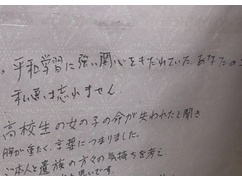 平和学習に強い関心をもたれていた、あなたの
私達は忘れません。
高校生の女の子の命が失われたと聞き
胸が重たく、言葉につまりました。
ご本人と遺族の方々の気持ちを考え